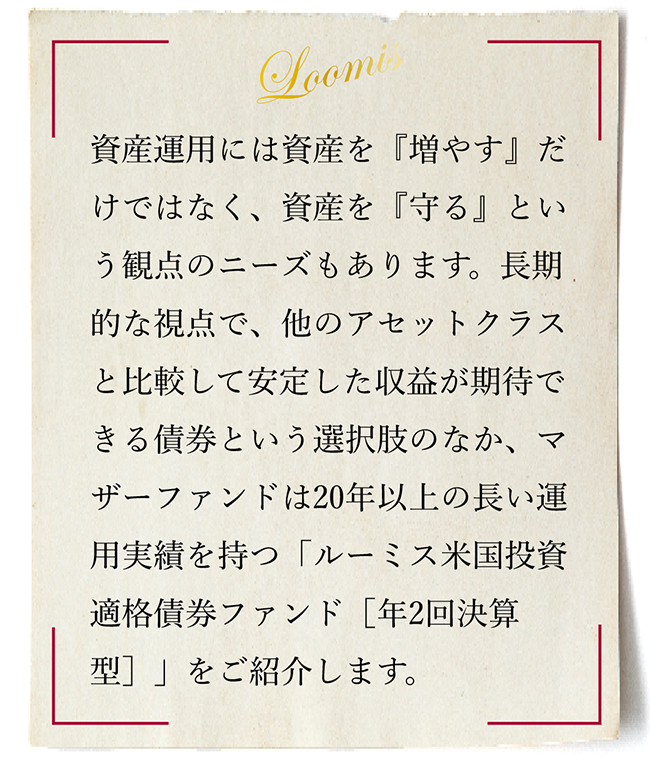 Loomis
資産運用には資産を『増やす』だ
けではなく、資産を『守る』とい
う観点のニーズもあります。長期
的な視点で、他のアセットクラス
と比較して安定した収益が期待で
きる債券という選択肢のなか、マ
ザーファンドは20年以上の長い運
用実績を持つ「ルーミス米国投資
適格債券ファンド［年2回決算
型］」をご紹介します。